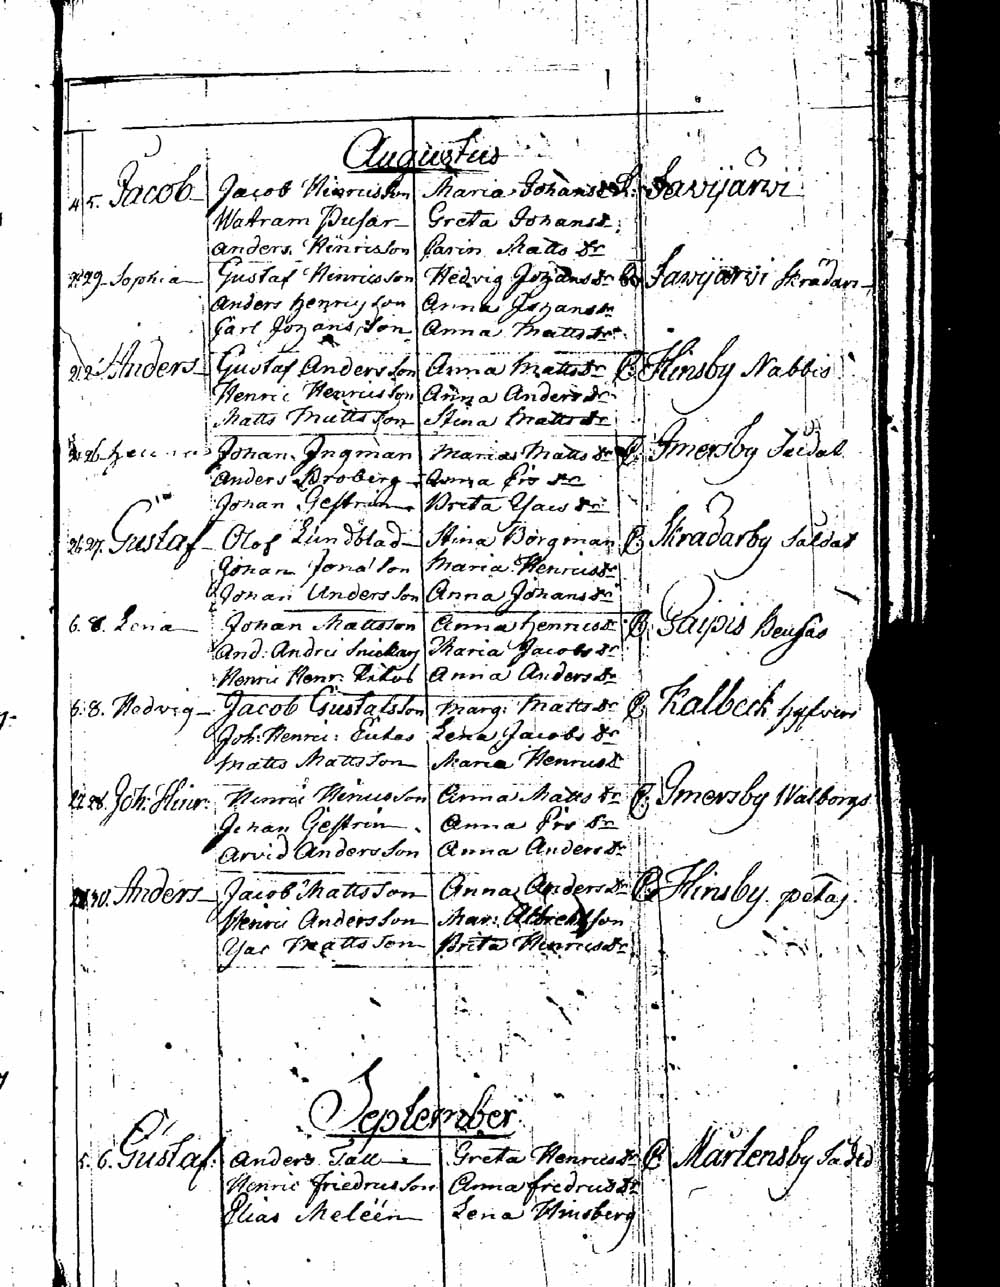 Augustus
4 5. Jacob Jacob Hinricsson Maria Johansdr Savijärvi
Greta Johansdr
Anders Hinricsson Carin Mattsdr
29 Sophia Gustaf Henricsson Hedvig Johansdr Savijärvi Skrädari
Anders Henricsson Anna Johansdr
Carl Johansson Anna Mattsdr
Anders Gustaf Andersson Anna Mattsdr C. Hinsby Nabbis
Henric Henricsson Anna Andersdr
Matts Mattsson Stina Mattsdr
26 Johan Ingman Maria Mattsdr C. Imersby Soldat
Anders Broberg Anna Ersdr
Johan Gestrin Brita Yacsdr
26 27. Gustaf Olof Lundblad Stina Borgman C. Skradarby Saldat
Johan Jonasson Maria Henricsdr
Johan Andersson Anna Johansdr
6. 8. Lena Johan Mattsson Anna Henricsdr C. Paipis
And: Maria Jacobsdr
Henric Henr: Anna Andersdr
6. 8. Hedvig Jacob Gustafsson Marg: Mattsdr C. Kalbeck
Joh: Henric: Lena Jacobsdr
Matts Mattsson Maria Henricsdr
28. Joh: Hinr: Henric Henricsson Anna Mattsdr C. Imersby Walborgs
Johan Gestrin Anna Ersdr
Arvid Andersson Anna Andersdr
30. Anders Jacob Mattsson Anna Andersdr C. Hinsby petas
Henric Andersson Mar: Albrektson
Yac Mattsson Brita Henricsdr
September
5. 6. Gustaf. Anders Tall Greta Henricsdr C Mårtensby
Henric Friedricsson Anna Fredricsdr
Elias Meléen Lena Hinsberg